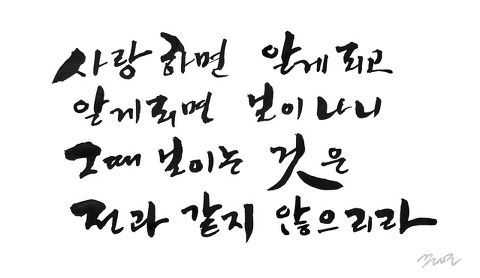 사랑하면 알게되고
알게되면 보이나니
그때 보이는 것은
전과 같지 않으리라